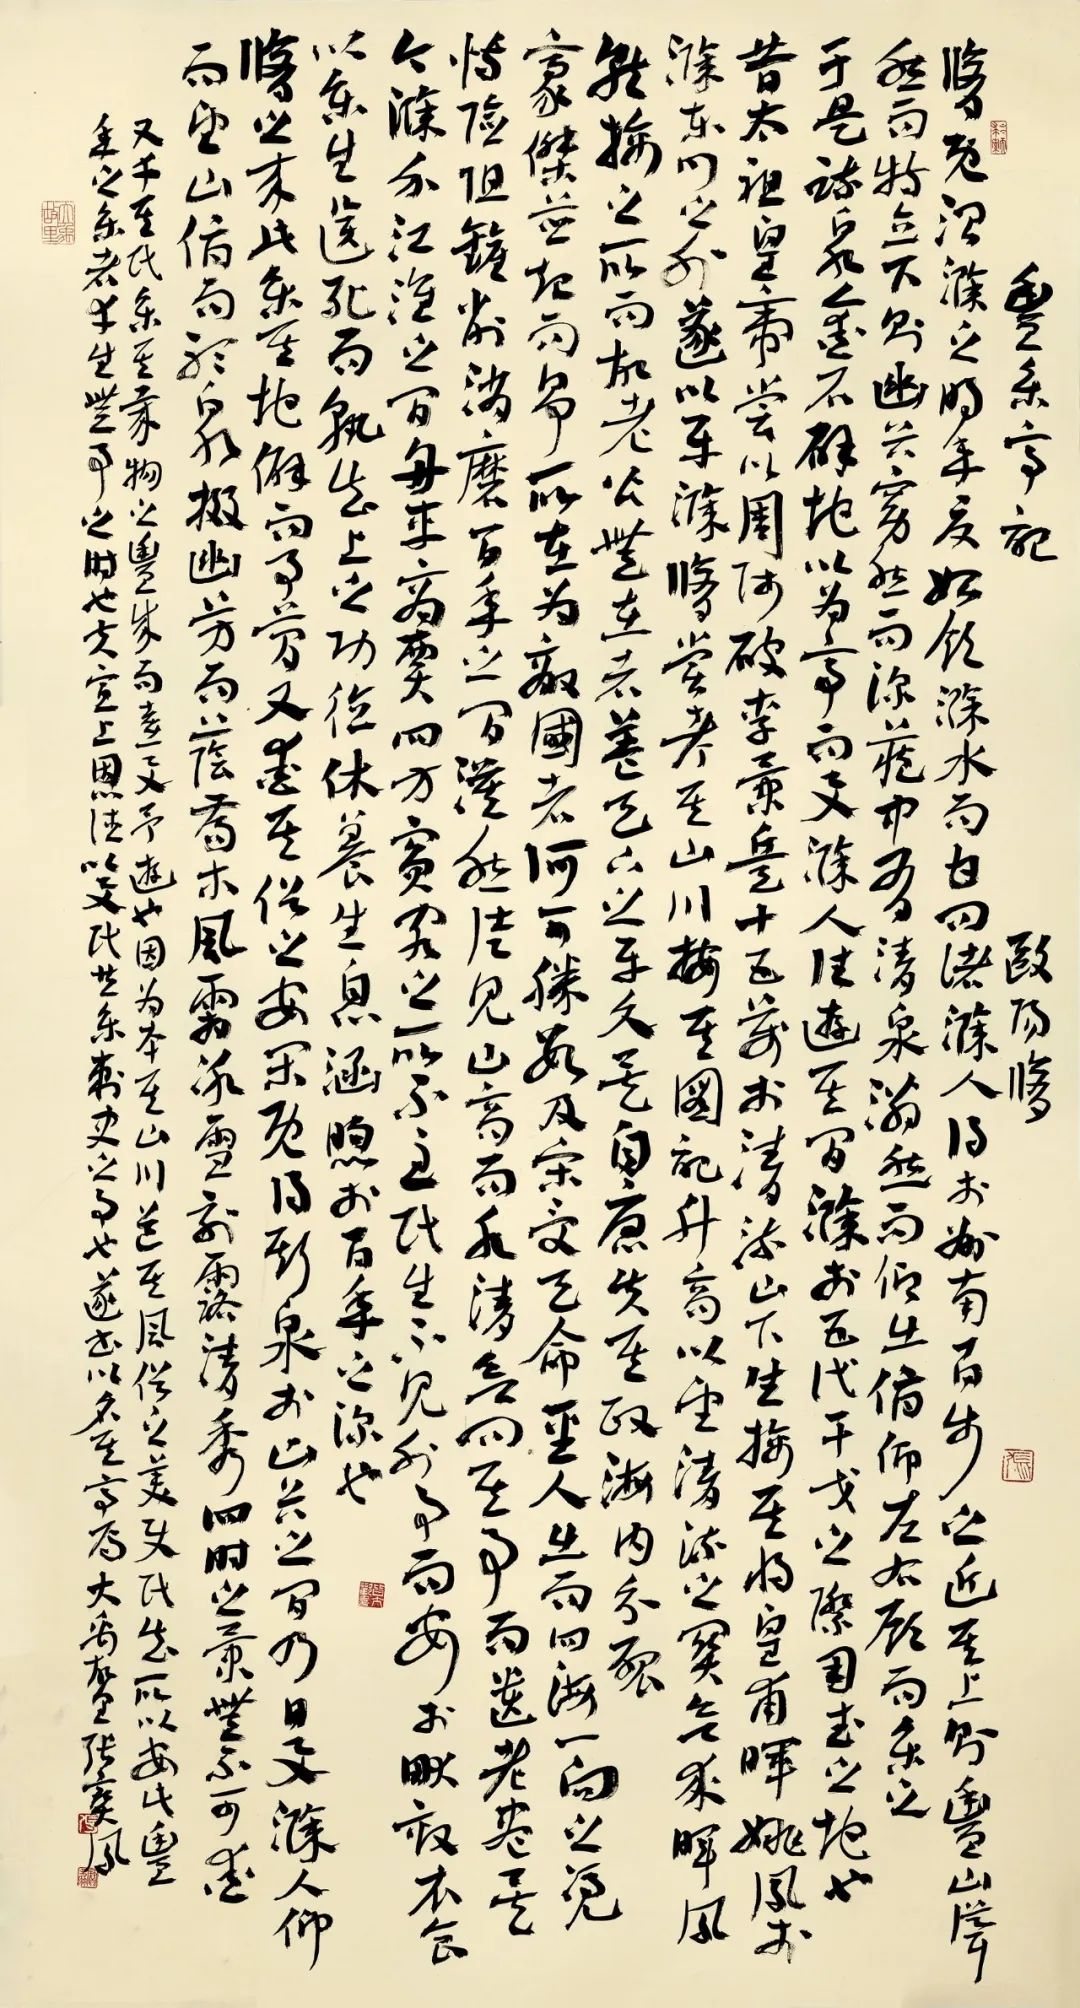 豐樂亭記 歐陽脩
脩既治滁之明年夏始飲滁水而甘問諸滁人得於州南百步之近其上則豐山聳
然而特立下則幽谷窈然而深藏中有清泉滃然而仰出俯仰左右顧而樂之
于是疏泉鑿石辟地以為亭而与滁人往遊其間滁於五代干戈之際用武之地也
昔太祖皇帝嘗以周師破李景兵十五萬於清流山下生擒其將皇甫暉姚鳳於
滁東門之外遂以平滁脩嘗考其山川按其圖記升高以望清流之關欲求暉鳳
就擒之所而故老皆無在者蓋天下之平久矣自唐失其政海內分裂
豪傑並起而爭所在為敵國者何可勝數及宋受天命聖人出而四海一向之憑
恃險阻鏟削消磨百年之間漠然徒見山高而水清欲問其事而遺老盡矣
今滁介江淮之間舟車商賈四方賓客之所不至民生不見外事而安於畎畝衣食
以樂生送死而孰知上之功德休養生息涵煦於百年之深也
脩之來此樂其地僻而事簡又愛其俗之安閑既得斯泉於山谷之間乃日与滁人仰
而望山俯而聽泉掇幽芳而蔭喬木風霜冰雪刻露清秀四時之景無不可愛
又幸其民樂其歲物之豐成而喜与予遊也因為本其山川道其風俗之美使民知所以安此豐
年之樂者幸生無事之時也夫宣上恩德以与民共樂刺史之事也遂書以名其亭焉 大禹 張奕鳳